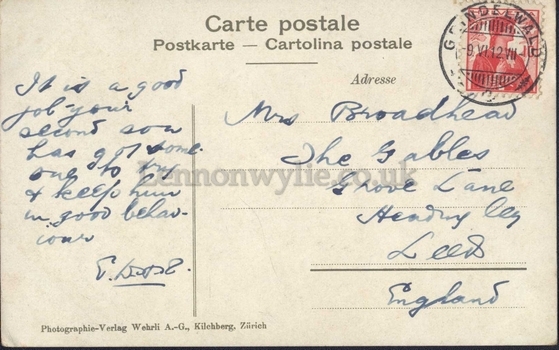 Carte postale
Postkarte — Cartolina postale
Adresse
GRINDELWALD
9.VI.12.VII
It is a good
job your
second son
has got some
one to try
& keep him
in good behav-
iour
Mrs Broadhead
The Gables
Grove Lane
Headingley
Leeds
England
zennonwylie.co.uk
Photographie-Verlag Wehrli A.-G., Kilchberg, Zürich